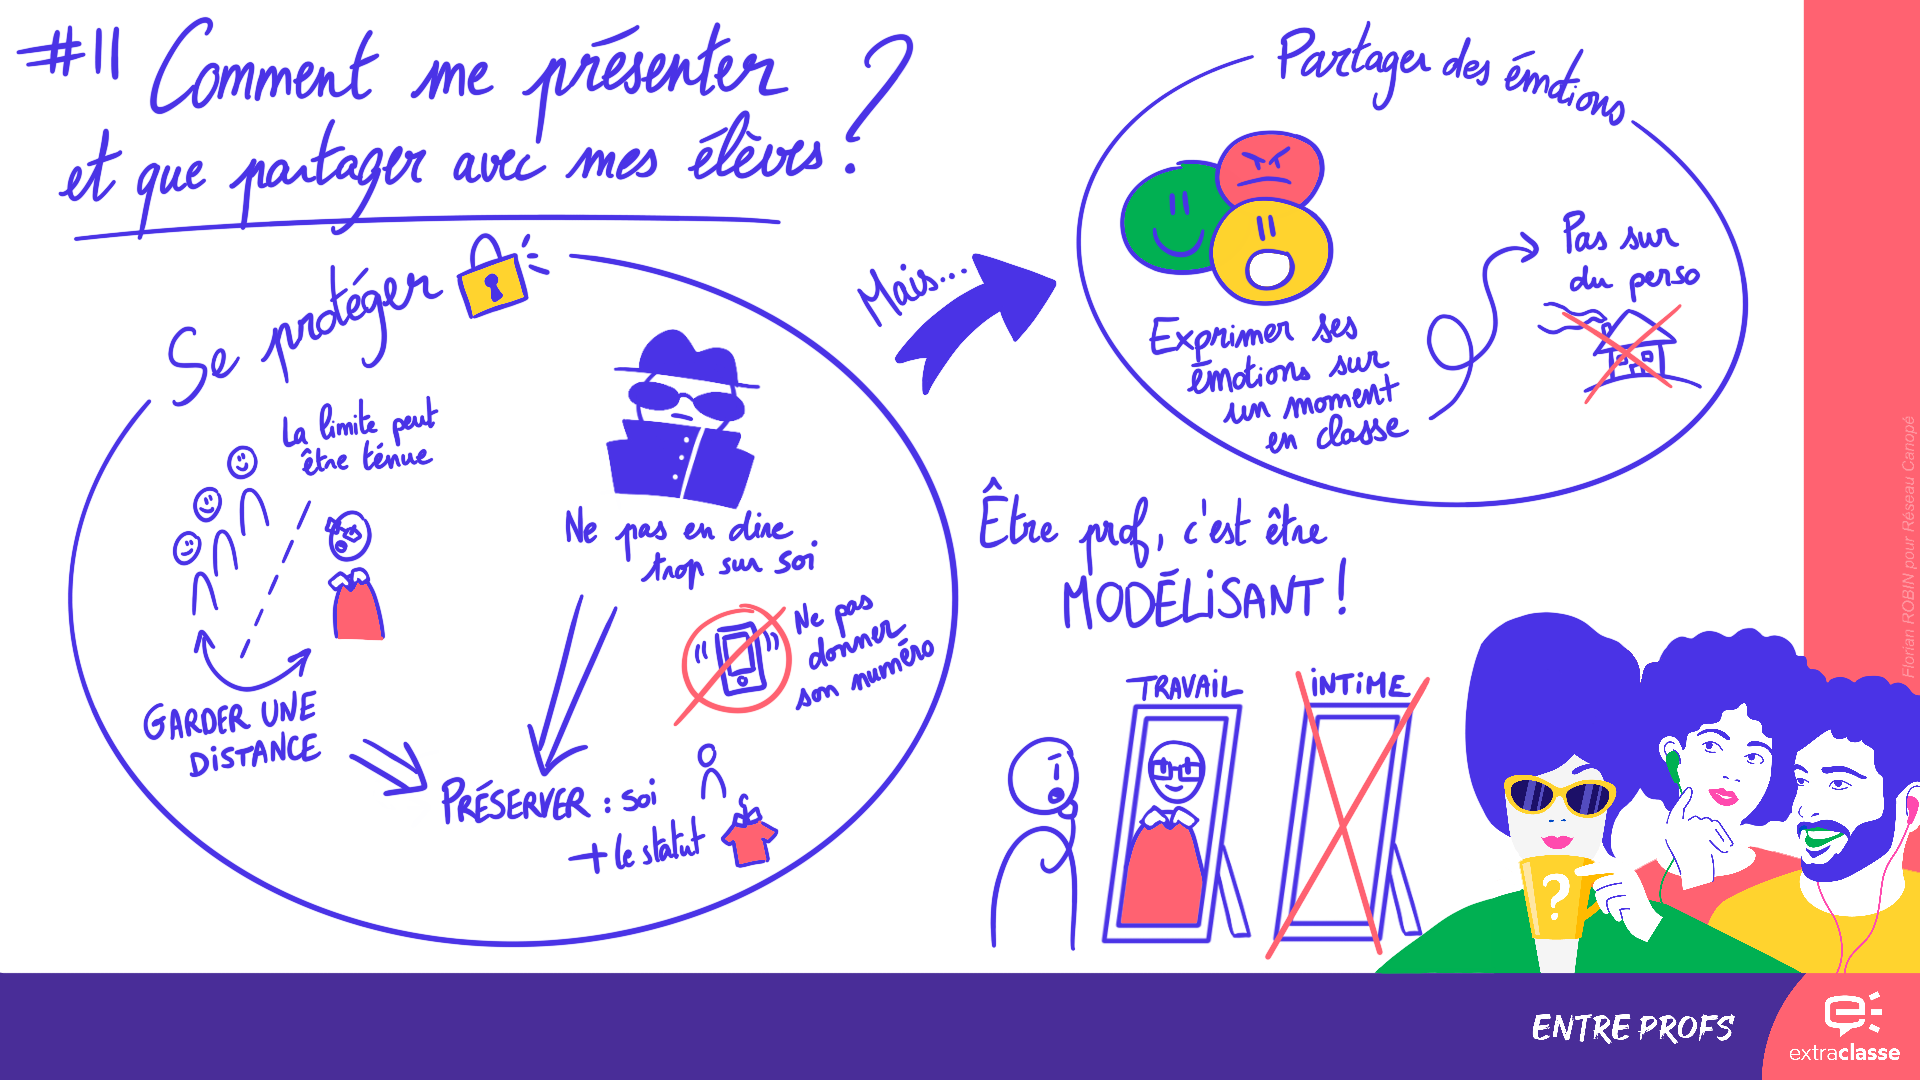 #11 Comment me présenter
et que partager avec mes élèves ?
Se protéger
La limite peut
être ténue
GARDER UNE
DISTANCE
Ne pas en dire
trop sur soi
Ne pas
donner
son numéro
PRÉSERVER : soi
+ le statut
Mais...
Partager des émotions
Exprimer ses
émotions sur
un moment
en classe
Pas sur
du perso
Être prof, c'est être
MODÉLISANT !
TRAVAIL
INTIME
?
Florian ROBIN pour Réseau Canopé
ENTRE PROFS
extraclasse